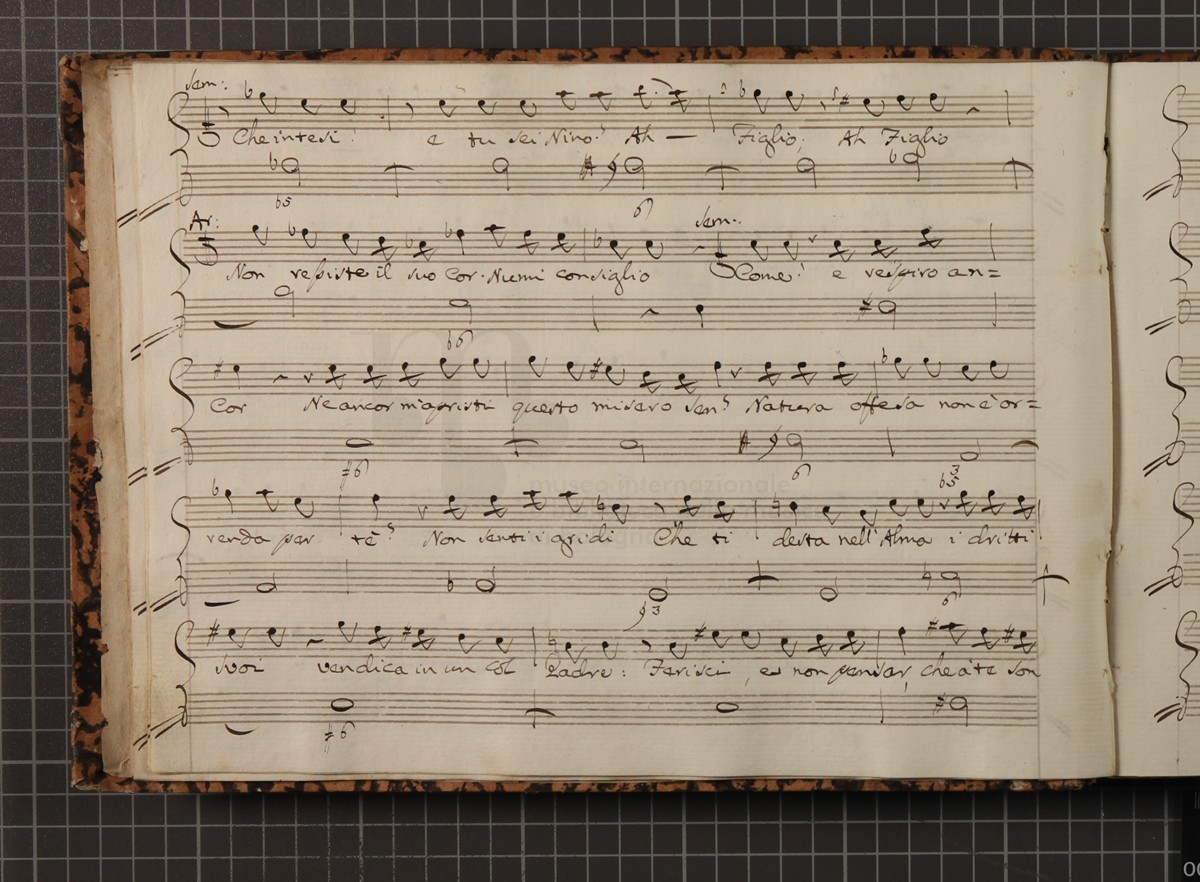 Sem:
Che intesi! e tu sei Nino? Ah — Figlio; Ah Figlio
b5 6
Ar: Sem:
Non resiste il suo Cor. Numi consiglio Come! e respiro an=
b6
Cor Ne ancor m'apristi questo misero sen? Natura offesa non è or=
#6 6 b5 3
renda per tè? Non senti i gridi Che ti desta nell'Alma i dritti
3 6
suoi vendica in un sol Padre: Ferisci, e non pensar, che a te son
#6
museo internazionale